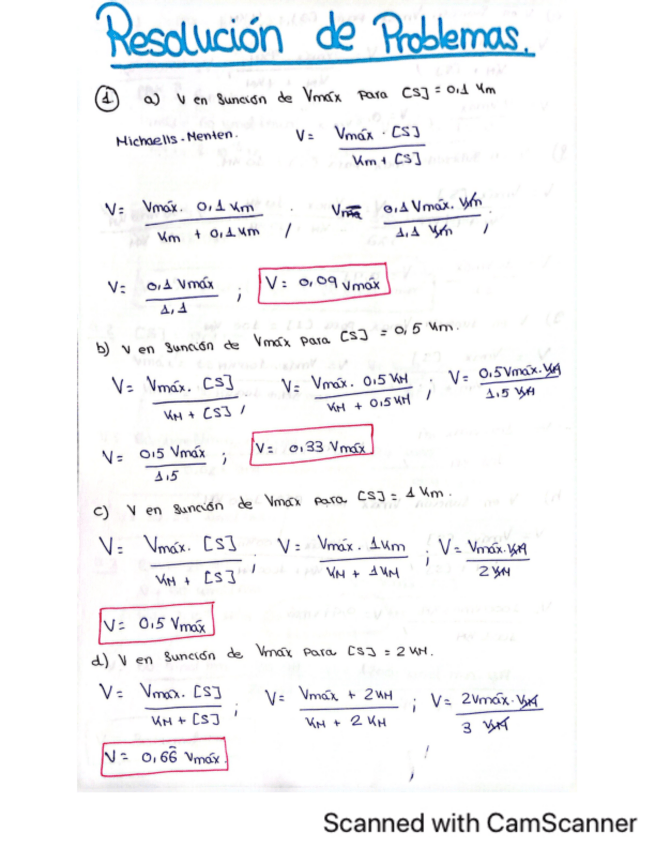 Resolución de Problemas.
1 a) V en función de Vmáx para [S] = 0,1 Km
Michaelis-Menten. V = Vmáx · [S] / Km + [S]
V = Vmáx. 0,1 Km / Km + 0,1 Km ; V = 0,1 Vmáx. Km / 1,1 Km ;
V = 0,1 Vmáx / 1,1 ; V = 0,09 Vmáx
b) V en función de Vmáx para [S] = 0,5 Km.
V = Vmáx. [S] / KM + [S] ; V = Vmáx. 0,5 KM / KM + 0,5 KM ; V = 0,5 Vmáx. KM / 1,5 KM
V = 0,5 Vmáx / 1,5 ; V = 0,33 Vmáx
c) V en función de Vmáx para [S] = 1 Km.
V = Vmáx. [S] / KM + [S] ; V = Vmáx. 1 Km / KM + 1 KM ; V = Vmáx. KM / 2 KM
V = 0,5 Vmáx
d) V en función de Vmáx para [S] = 2 KM.
V = Vmáx. [S] / KM + [S] ; V = Vmáx + 2 KM / KM + 2 KM ; V = 2 Vmáx. KM / 3 KM
V = 0,66 Vmáx.
Scanned with CamScanner